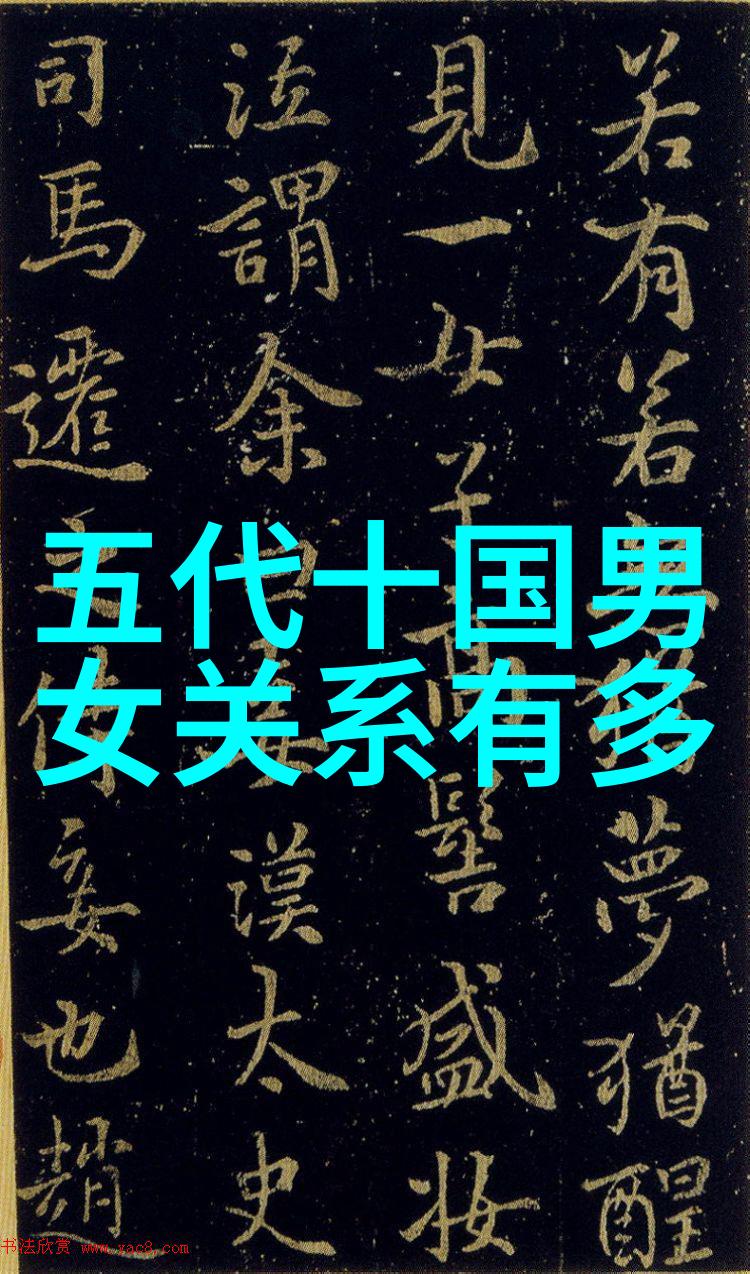 五代十国男
女关系有多
若有若夢猶醒
見一女子高髻盛妝
泣謂余曰妾漢太史
司馬遷之侍妾也趙
书法欣赏 www.yac8.com